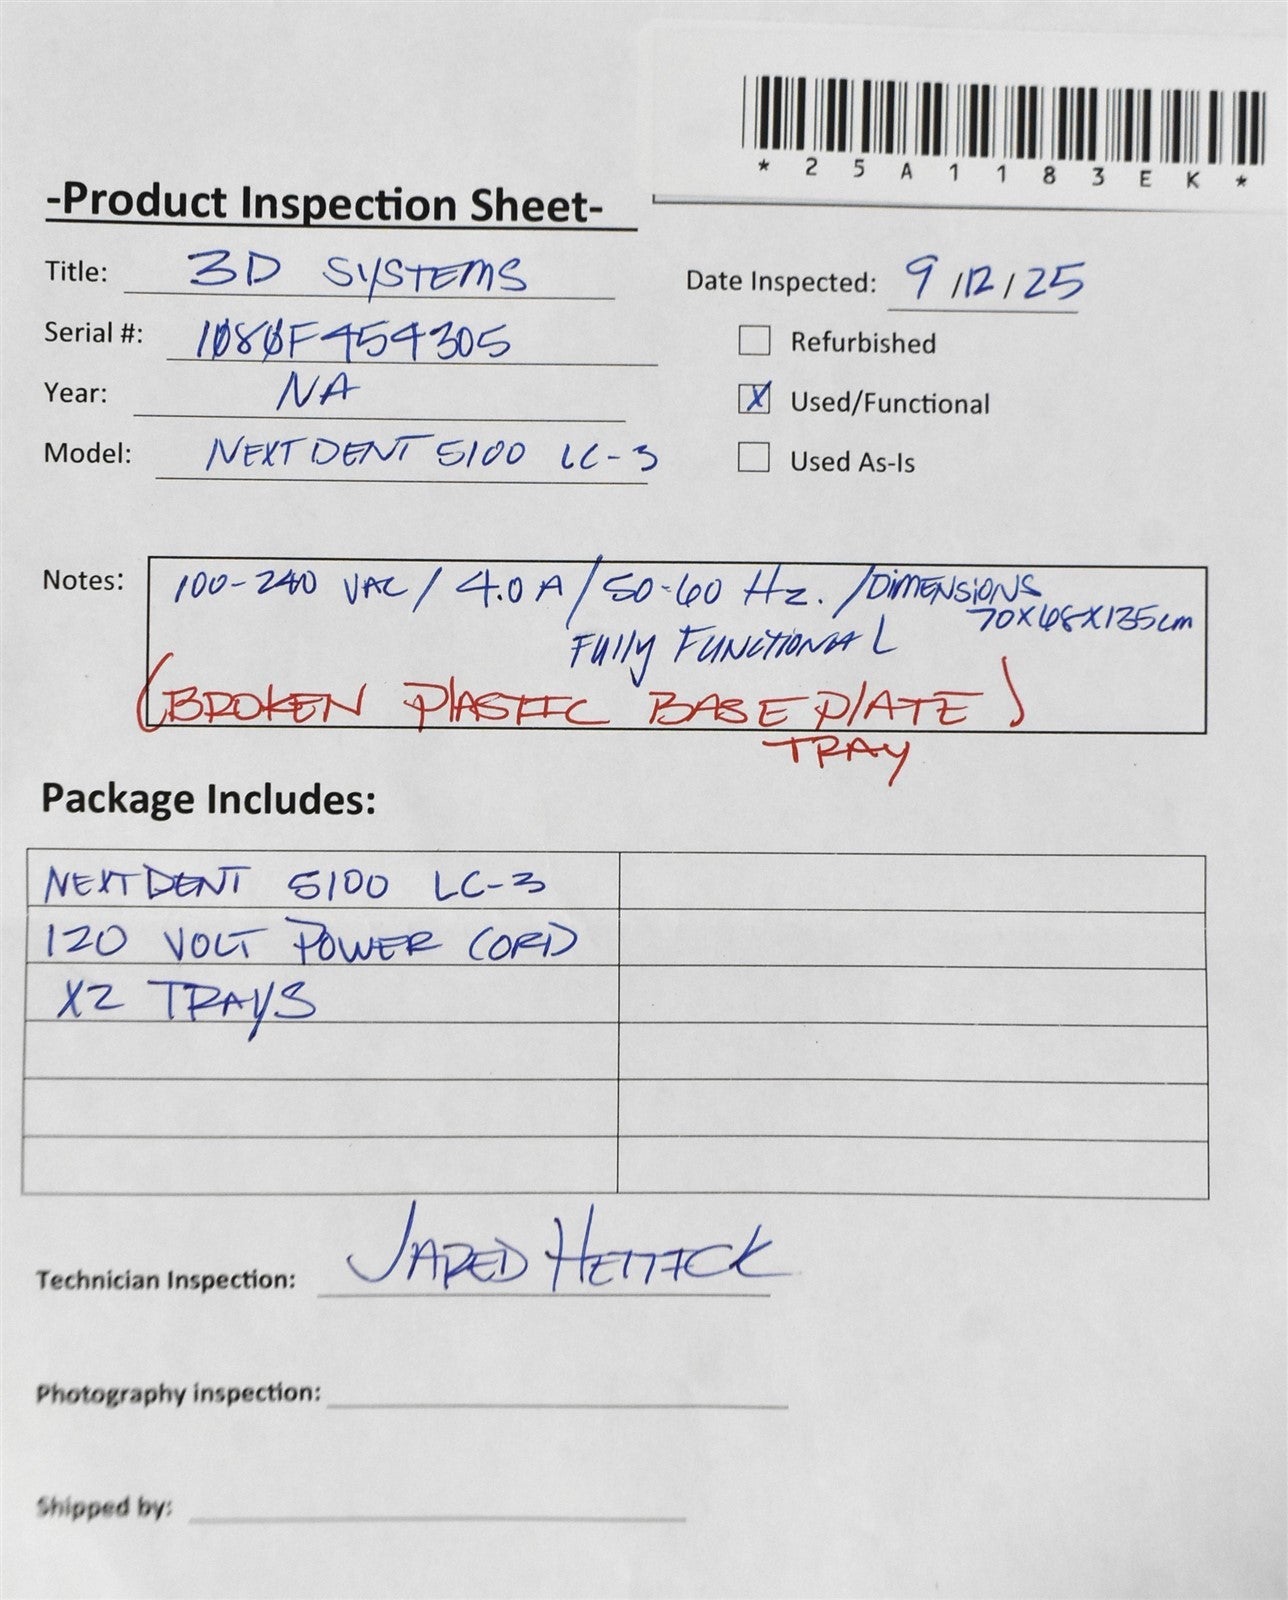 * 2 5 A 1 1 8 3 E K *
-Product Inspection Sheet-
Title: 3D SYSTEMS
Date Inspected: 9/12/25
Serial #: 1080F454305
Refurbished
Year: NA
X Used/Functional
Model: NEXTDENT 5100 LC-3
Used As-Is
Notes: 100-240 VAC / 4.0 A / 50-60 Hz. / DIMENSIONS
70X68X135cm
FUlly FUNCTIONAL
(BROKEN PlASTIC BASE PlATE)
TRAY
Package Includes:
NEXTDENT 5100 LC-3
120 VOLT POWER CORD
X2 TRAYS
Technician Inspection: JARED HETTICK
Photography inspection:
Shipped by: